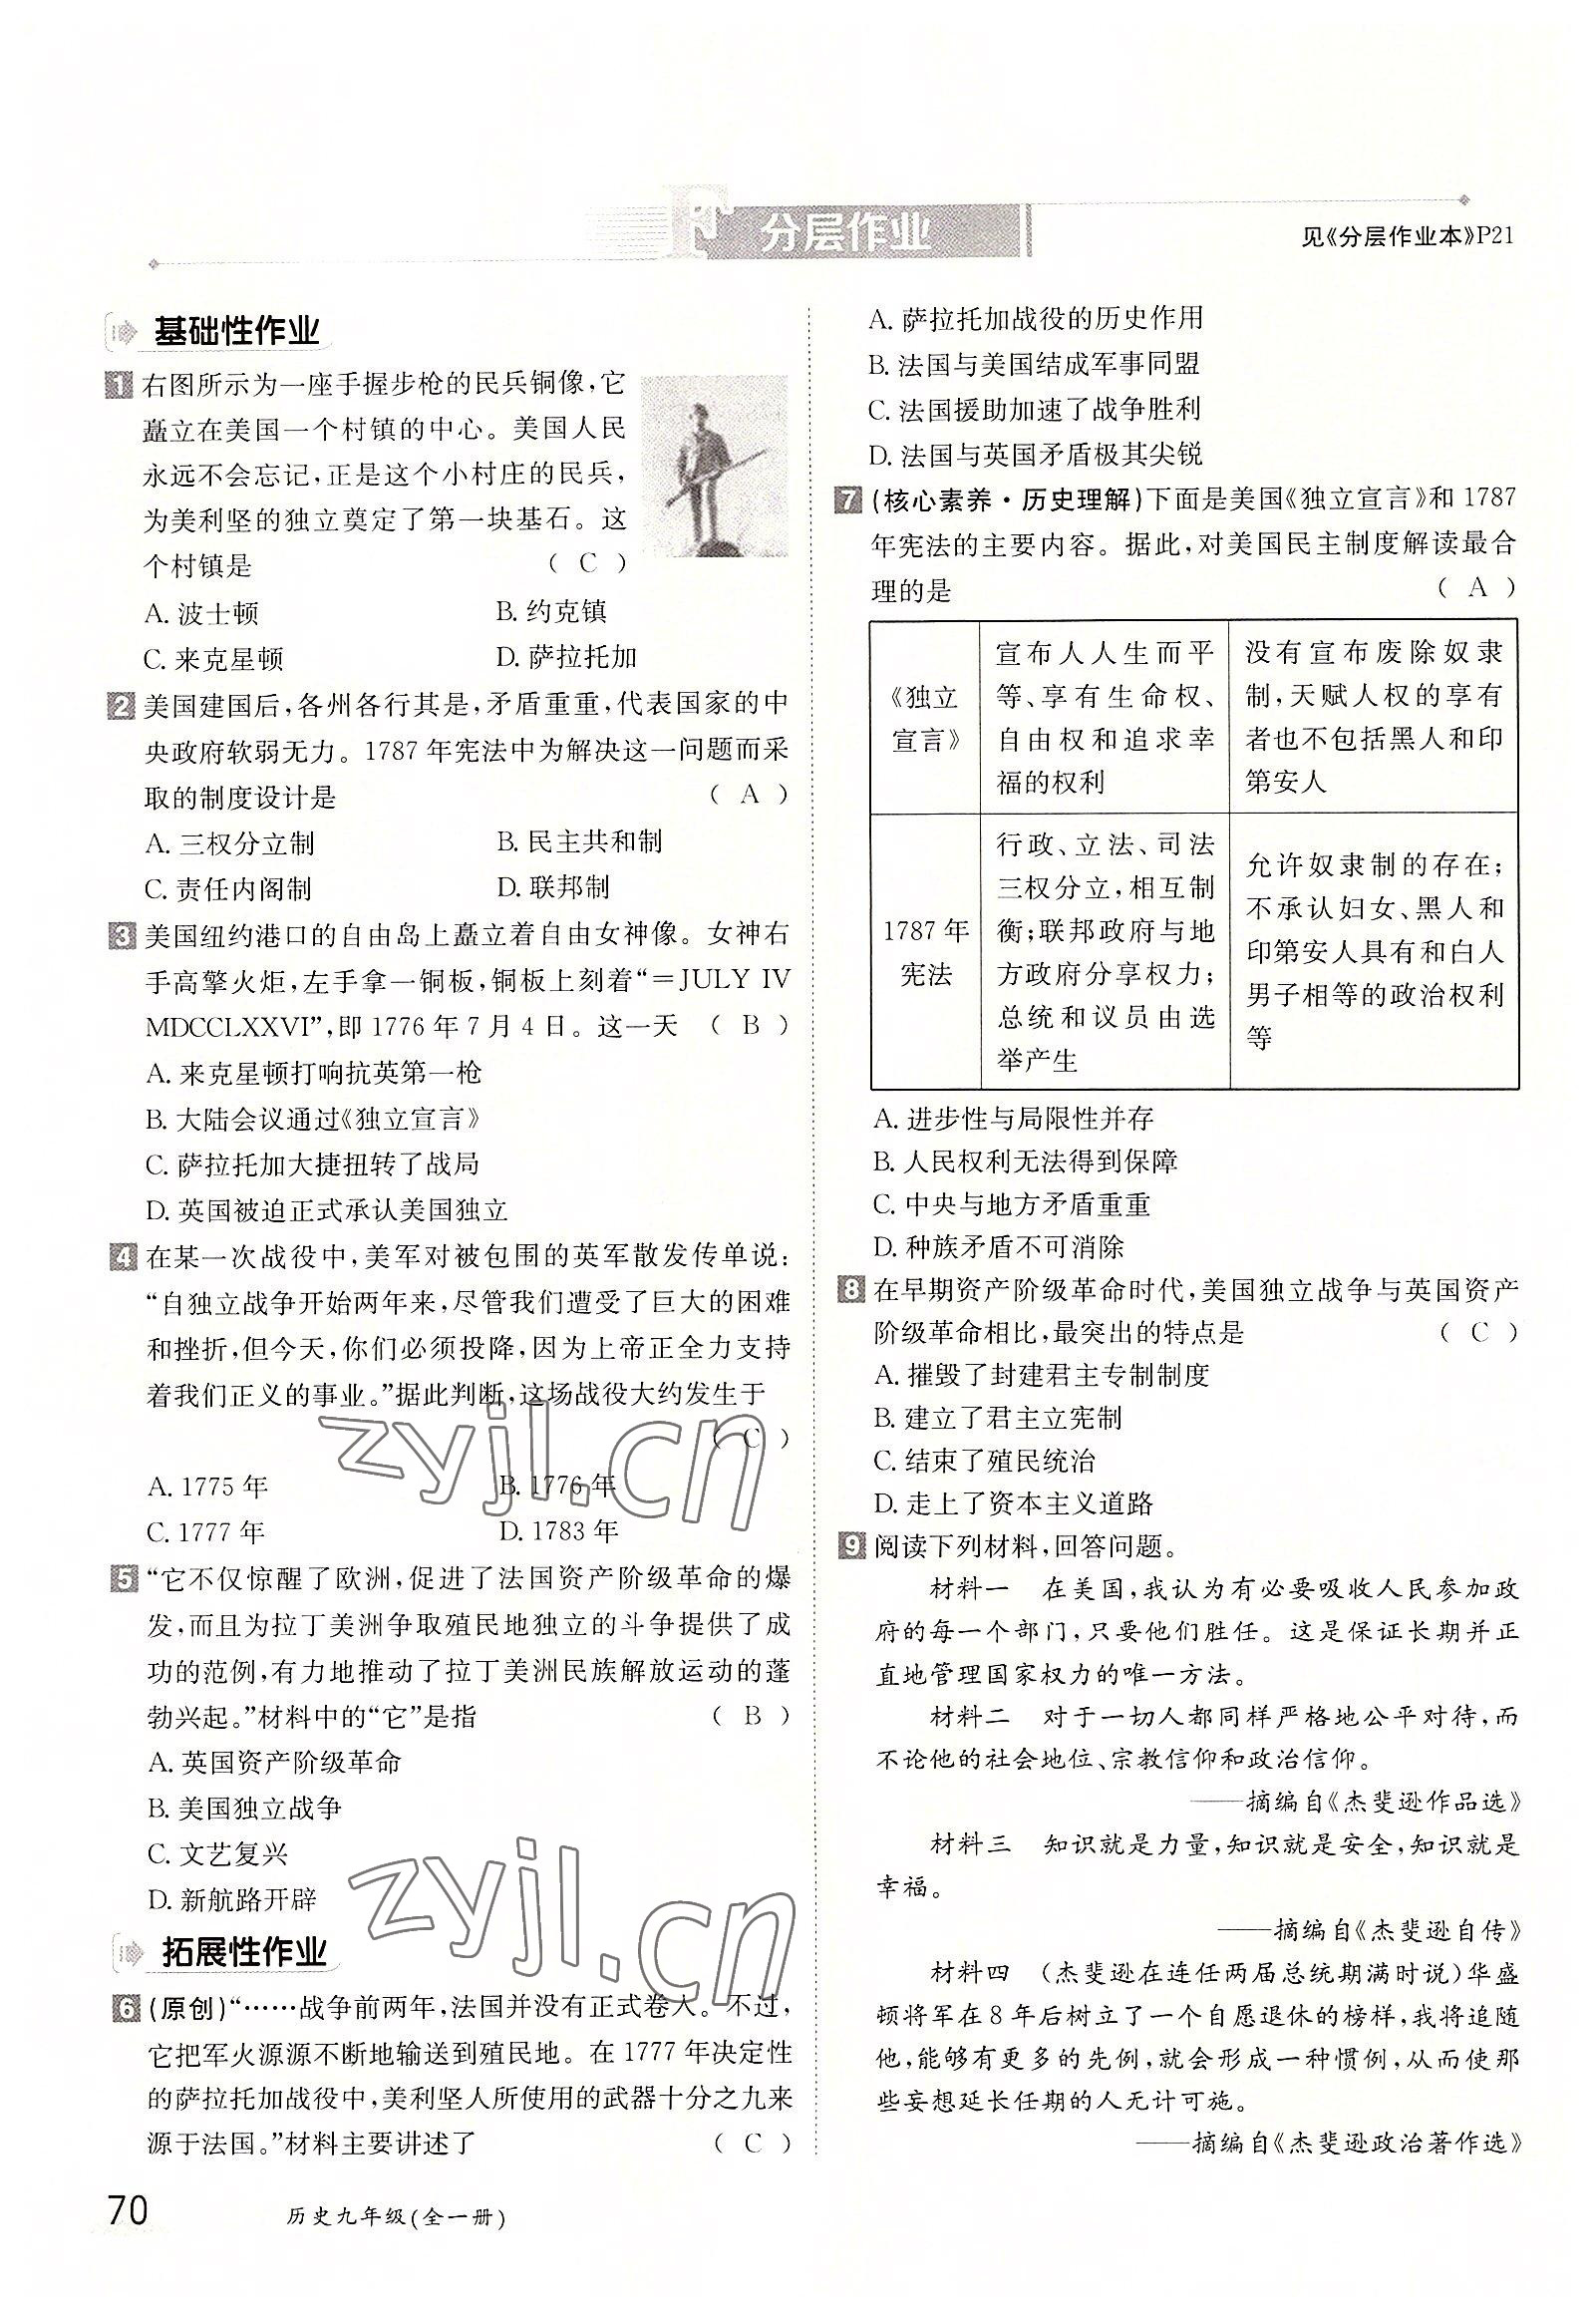 分层作业
见《分层作业本》P21
基础性作业
1 右图所示为一座手握步枪的民兵铜像,它
矗立在美国一个村镇的中心。美国人民
永远不会忘记,正是这个小村庄的民兵,
为美利坚的独立奠定了第一块基石。这
个村镇是 ( C )
A. 波士顿 B. 约克镇
C. 来克星顿 D. 萨拉托加
2 美国建国后,各州各行其是,矛盾重重,代表国家的中
央政府软弱无力。1787 年宪法中为解决这一问题而采
取的制度设计是 ( A )
A. 三权分立制 B. 民主共和制
C. 责任内阁制 D. 联邦制
3 美国纽约港口的自由岛上矗立着自由女神像。女神右
手高擎火炬,左手拿一铜板,铜板上刻着“=JULY IV
MDCCLXXVI”,即 1776 年 7 月 4 日。这一天 ( B )
A. 来克星顿打响抗英第一枪
B. 大陆会议通过《独立宣言》
C. 萨拉托加大捷扭转了战局
D. 英国被迫正式承认美国独立
4 在某一次战役中,美军对被包围的英军散发传单说:
“自独立战争开始两年来,尽管我们遭受了巨大的困难
和挫折,但今天,你们必须投降,因为上帝正全力支持
着我们正义的事业。”据此判断,这场战役大约发生于
( C )
A. 1775 年 B. 1776 年
C. 1777 年 D. 1783 年
5 “它不仅惊醒了欧洲,促进了法国资产阶级革命的爆
发,而且为拉丁美洲争取殖民地独立的斗争提供了成
功的范例,有力地推动了拉丁美洲民族解放运动的蓬
勃兴起。”材料中的“它”是指 ( B )
A. 英国资产阶级革命
B. 美国独立战争
C. 文艺复兴
D. 新航路开辟
拓展性作业
6 (原创)“……战争前两年,法国并没有正式卷入。不过,
它把军火源源不断地输送到殖民地。在 1777 年决定性
的萨拉托加战役中,美利坚人所使用的武器十分之九来
源于法国。”材料主要讲述了 ( C )
A. 萨拉托加战役的历史作用
B. 法国与美国结成军事同盟
C. 法国援助加速了战争胜利
D. 法国与英国矛盾极其尖锐
7 (核心素养·历史理解)下面是美国《独立宣言》和 1787
年宪法的主要内容。据此,对美国民主制度解读最合
理的是 ( A )
《独立
宣言》
宣布人人生而平
等、享有生命权、
自由权和追求幸
福的权利
没有宣布废除奴隶
制,天赋人权的享有
者也不包括黑人和印
第安人
1787 年
宪法
行政、立法、司法
三权分立,相互制
衡;联邦政府与地
方政府分享权力;
总统和议员由选
举产生
允许奴隶制的存在;
不承认妇女、黑人和
印第安人具有和白人
男子相等的政治权利
等
A. 进步性与局限性并存
B. 人民权利无法得到保障
C. 中央与地方矛盾重重
D. 种族矛盾不可消除
8 在早期资产阶级革命时代,美国独立战争与英国资产
阶级革命相比,最突出的特点是 ( C )
A. 摧毁了封建君主专制制度
B. 建立了君主立宪制
C. 结束了殖民统治
D. 走上了资本主义道路
9 阅读下列材料,回答问题。
材料一 在美国,我认为有必要吸收人民参加政
府的每一个部门,只要他们胜任。这是保证长期并正
直地管理国家权力的唯一方法。
材料二 对于一切人都同样严格地公平对待,而
不论他的社会地位、宗教信仰和政治信仰。
——摘编自《杰斐逊作品选》
材料三 知识就是力量,知识就是安全,知识就是
幸福。
——摘编自《杰斐逊自传》
材料四 (杰斐逊在连任两届总统期满时说)华盛
顿将军在 8 年后树立了一个自愿退休的榜样,我将追随
他,能够有更多的先例,就会形成一种惯例,从而使那
些妄想延长任期的人无计可施。
——摘编自《杰斐逊政治著作选》
70 历史九年级(全一册)
zyjl.cn
zyjl.cn